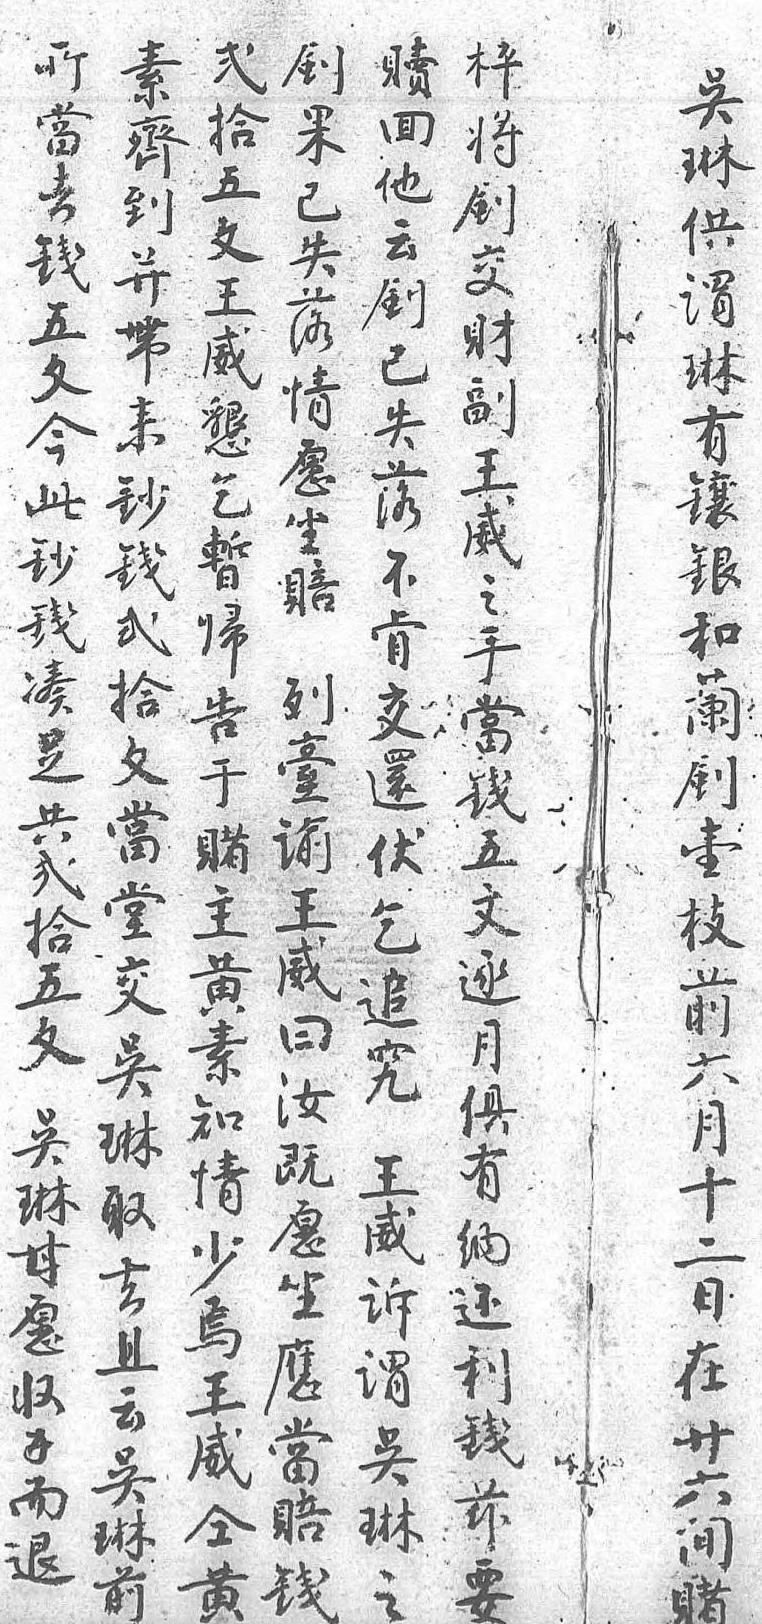 吳琳供謂琳有鑲銀和蘭劍壹枝前六月十二日在廿六间賭
梓將劍交財副王威之手當錢五文逐月俱有納还利錢茲要
贖回他云劍已失落不肯交還伏乞追究 王威訴謂吳琳之
劍果已失落情愿坐賠 列臺諭王威曰汝既愿坐應當賠錢
弍拾五文王威懇乞暫歸告于賭主黃素知情少焉王威仝黃
素齊到并帶来鈔錢弍拾文當堂交吳琳取去且云吳琳前
所當去錢五文今此鈔錢凑足共弍拾五文 吳琳甘愿收手而退